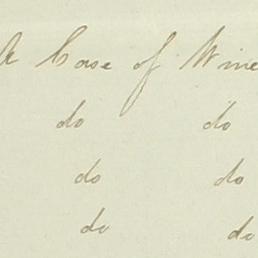 A Case of Wine
do do
do do
do do